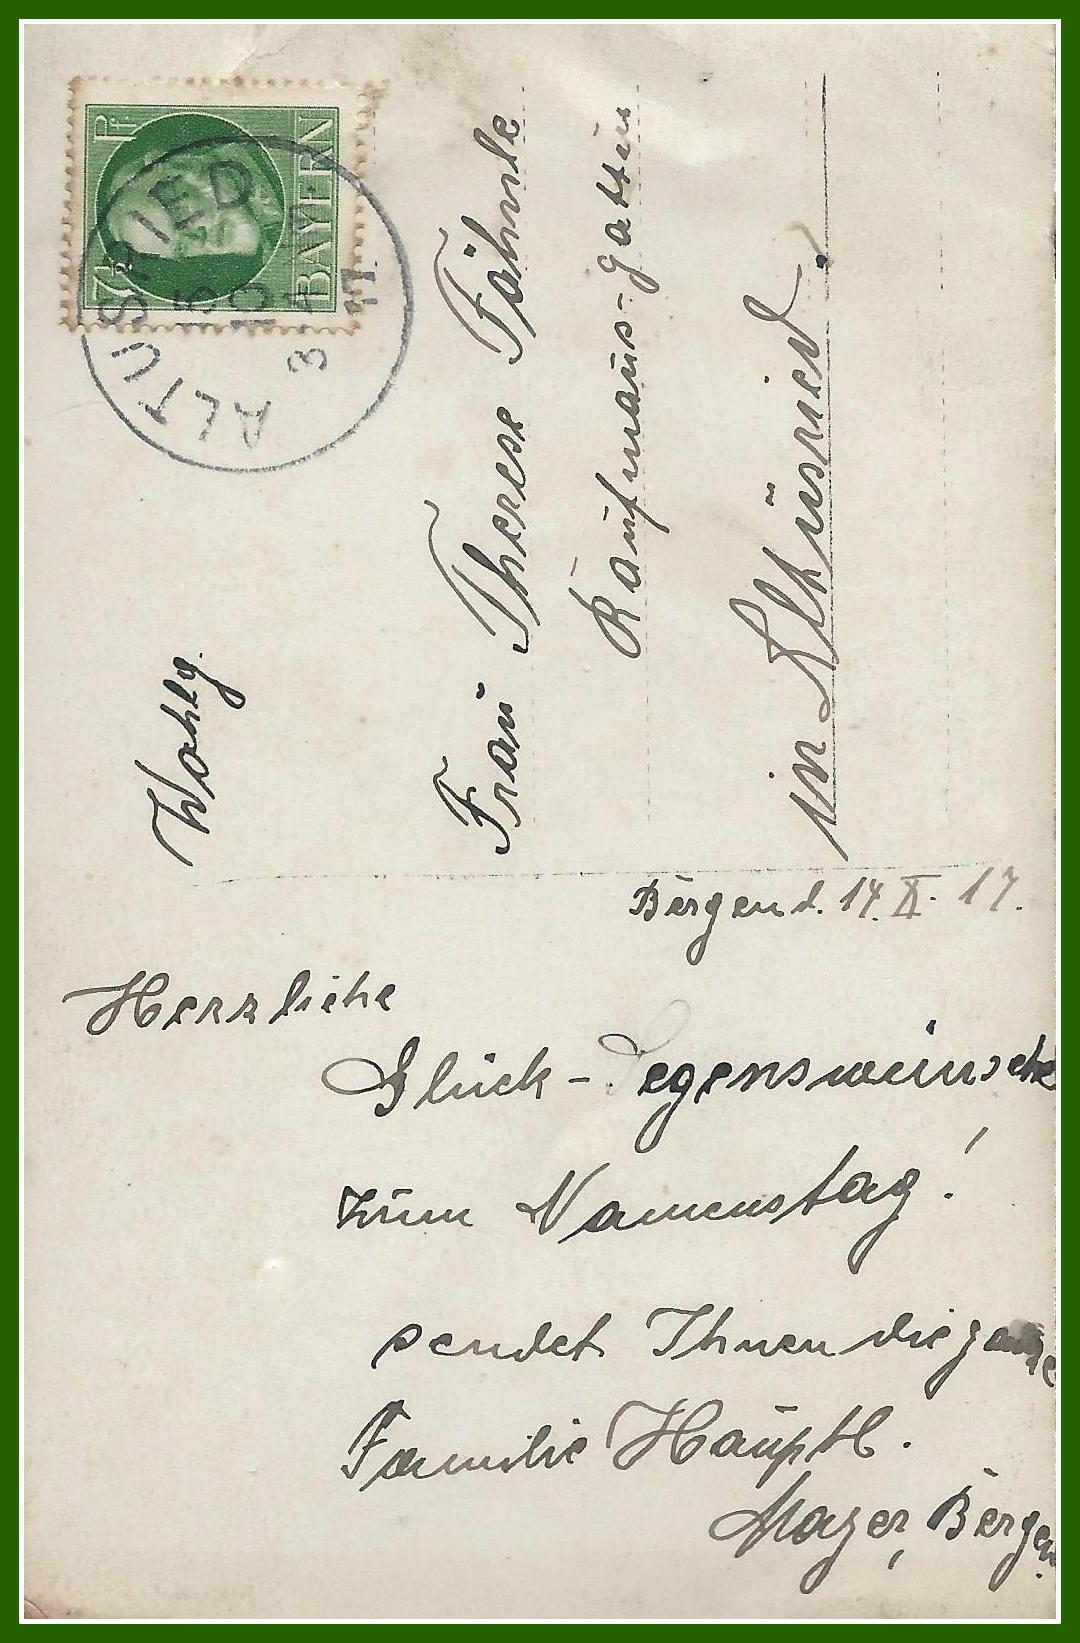 7½ Pf
BAYERN
ALTUSRIED
15
OKT
3-4
17.
Wohlg.
Frau Therese Föhnle
Kaufmanns-gattin
in Altusried.
Bergen d. 14. X. 17.
Herzliche
Glück-Segenswünsche
zum Namenstag!
sendet Ihnen die ganze
Familie Hauptl.
Mayer, Bergen.